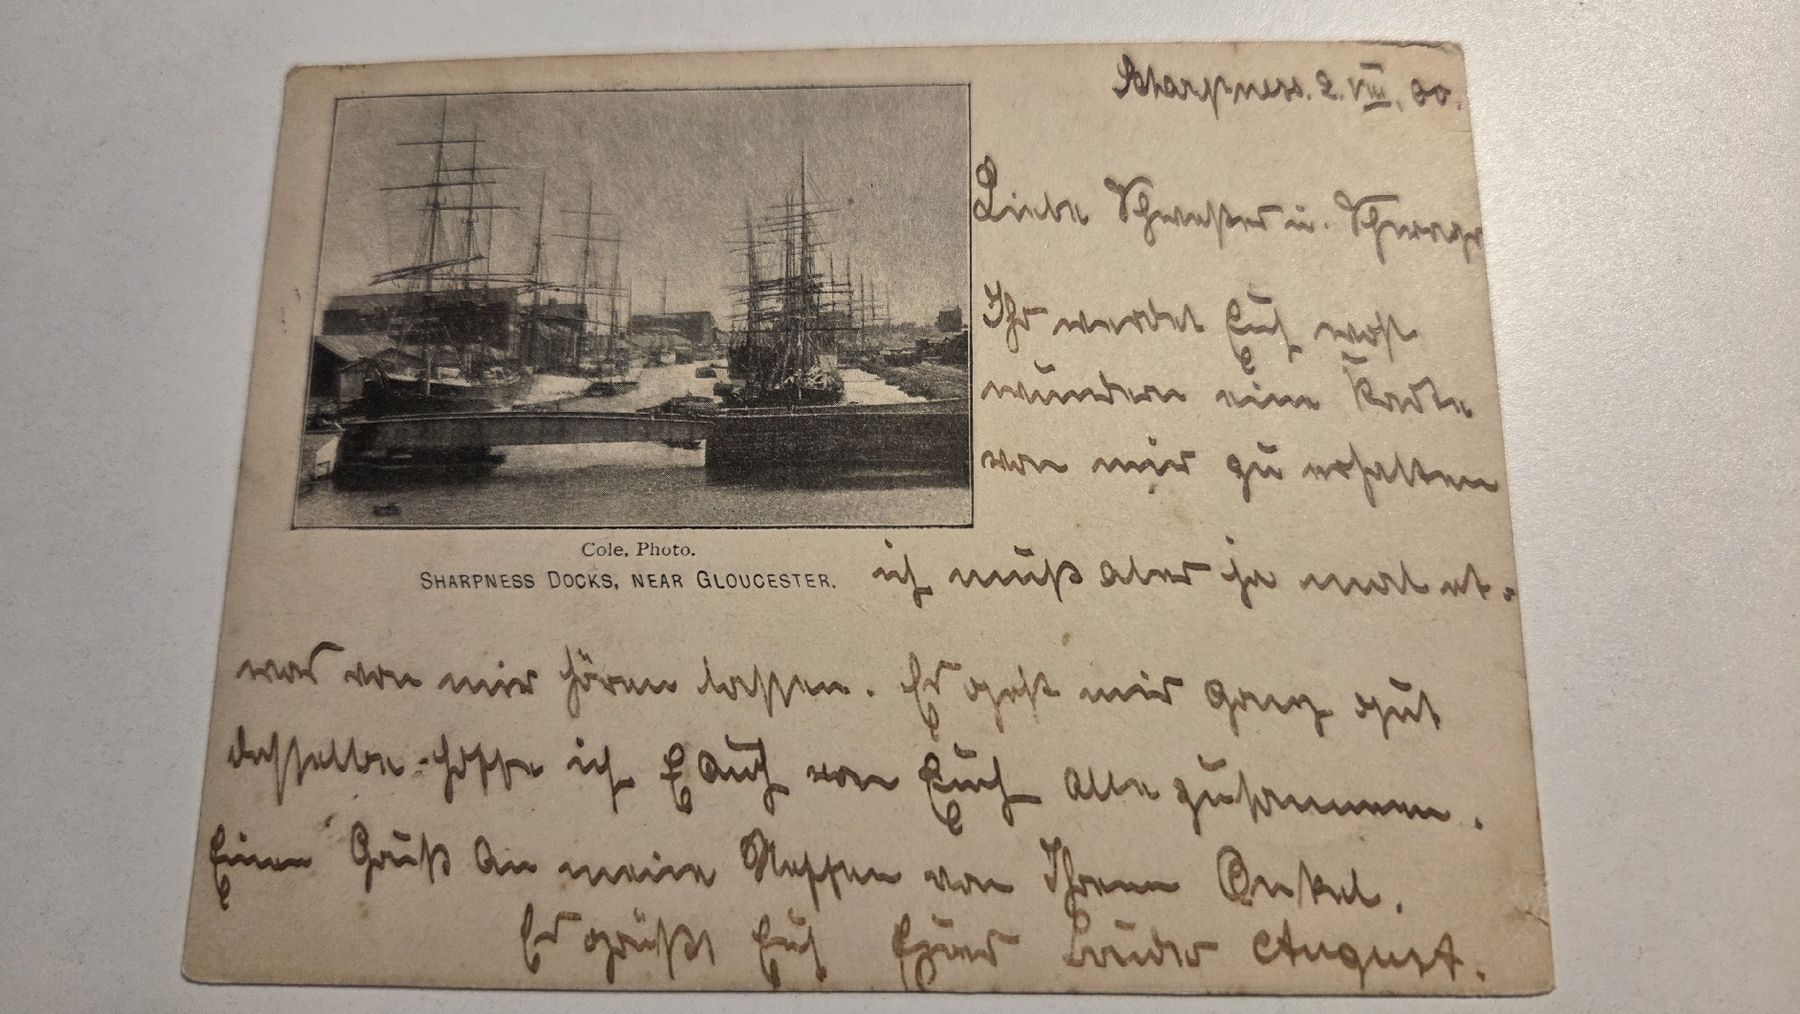 Sharpness. 2. VIII. 00.
Liebe Schwester u. Schwager
Ihr werdet Euch wohl
wundern eine Karte
von mir zu erhalten
Cole, Photo.
SHARPNESS DOCKS, NEAR GLOUCESTER.
ich muß aber ja mal et-
was von mir hören lassen. Es geht mir ganz gut
dasselbe hoffe ich auch von Euch alle zusammen.
Einen Gruß an meine Neffen von Ihrem Onkel.
Es grüßt Euch Euer Bruder August.